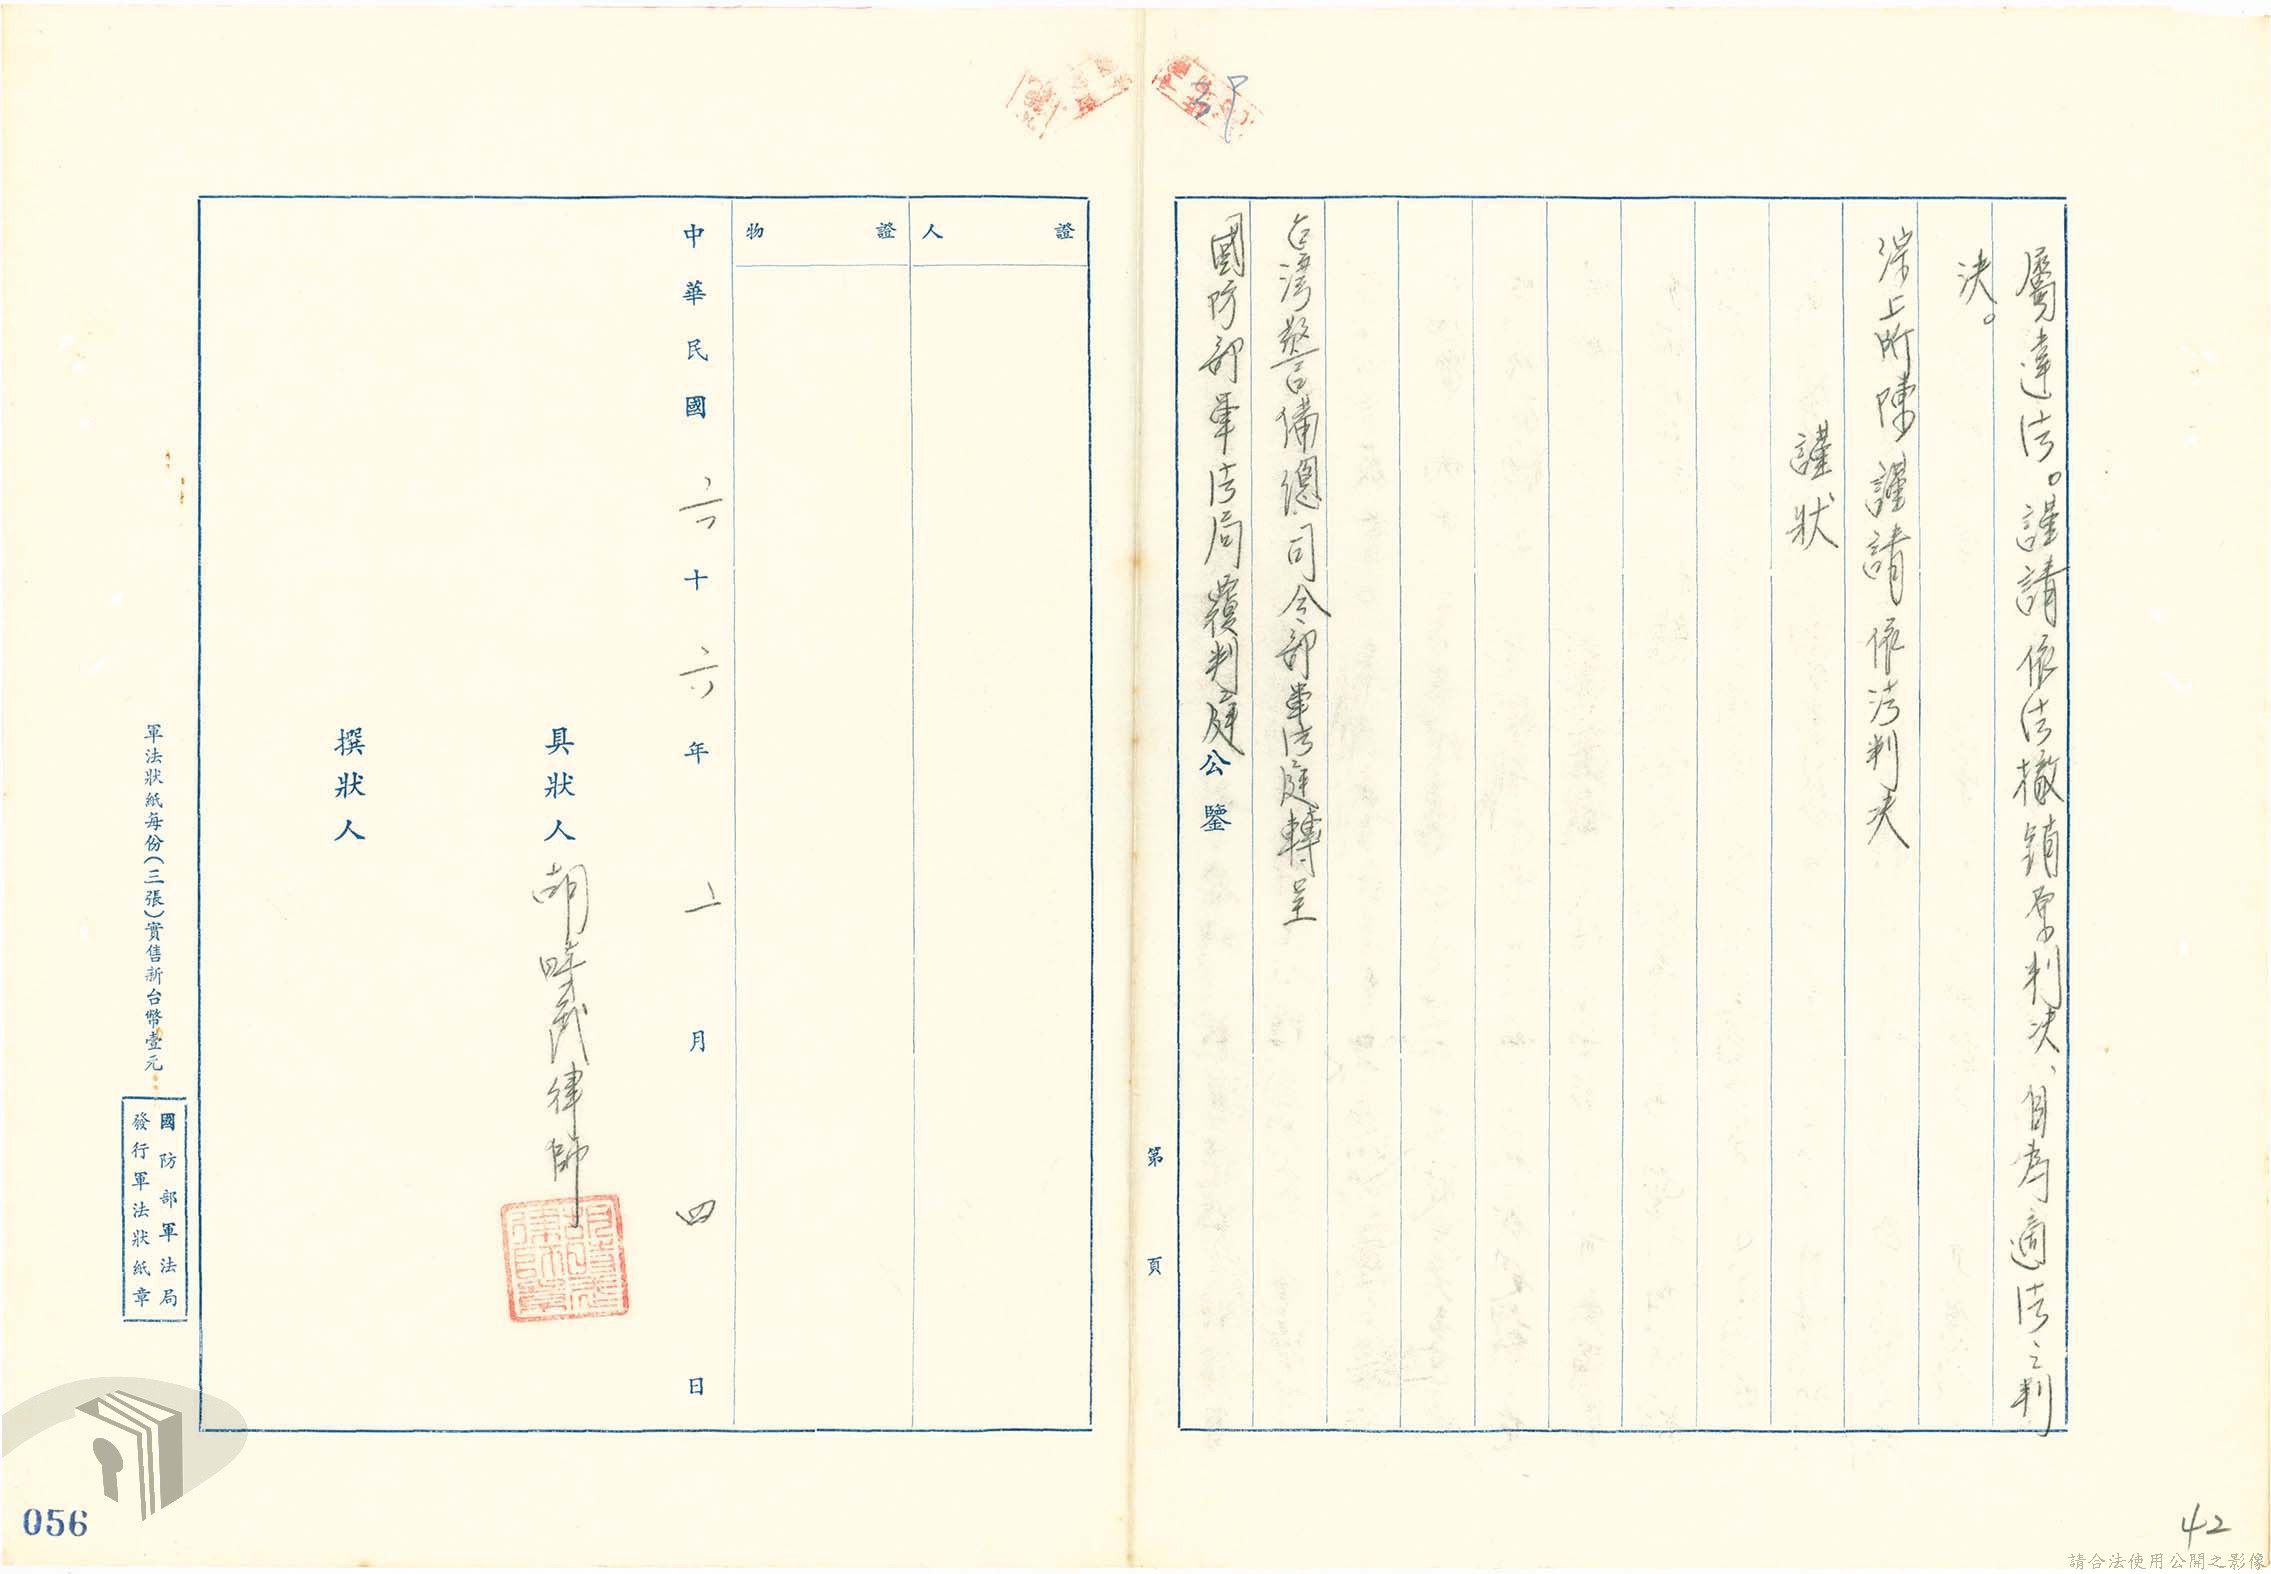 39
屬違法。謹請依法撤銷原判決、自為適法之判
決。
綜上所陳謹請依法判決
謹狀
台灣警備總司令部軍法庭轉呈
國防部軍法局覆判庭公鑒
第 頁
證人
證物
中華民國六十六年 月四日
具狀人 胡 律師
撰狀人
軍法狀紙每份(三張)實售新台幣壹元
國防部軍法局
發行軍法狀紙章
056
42
請合法使用公開之影像